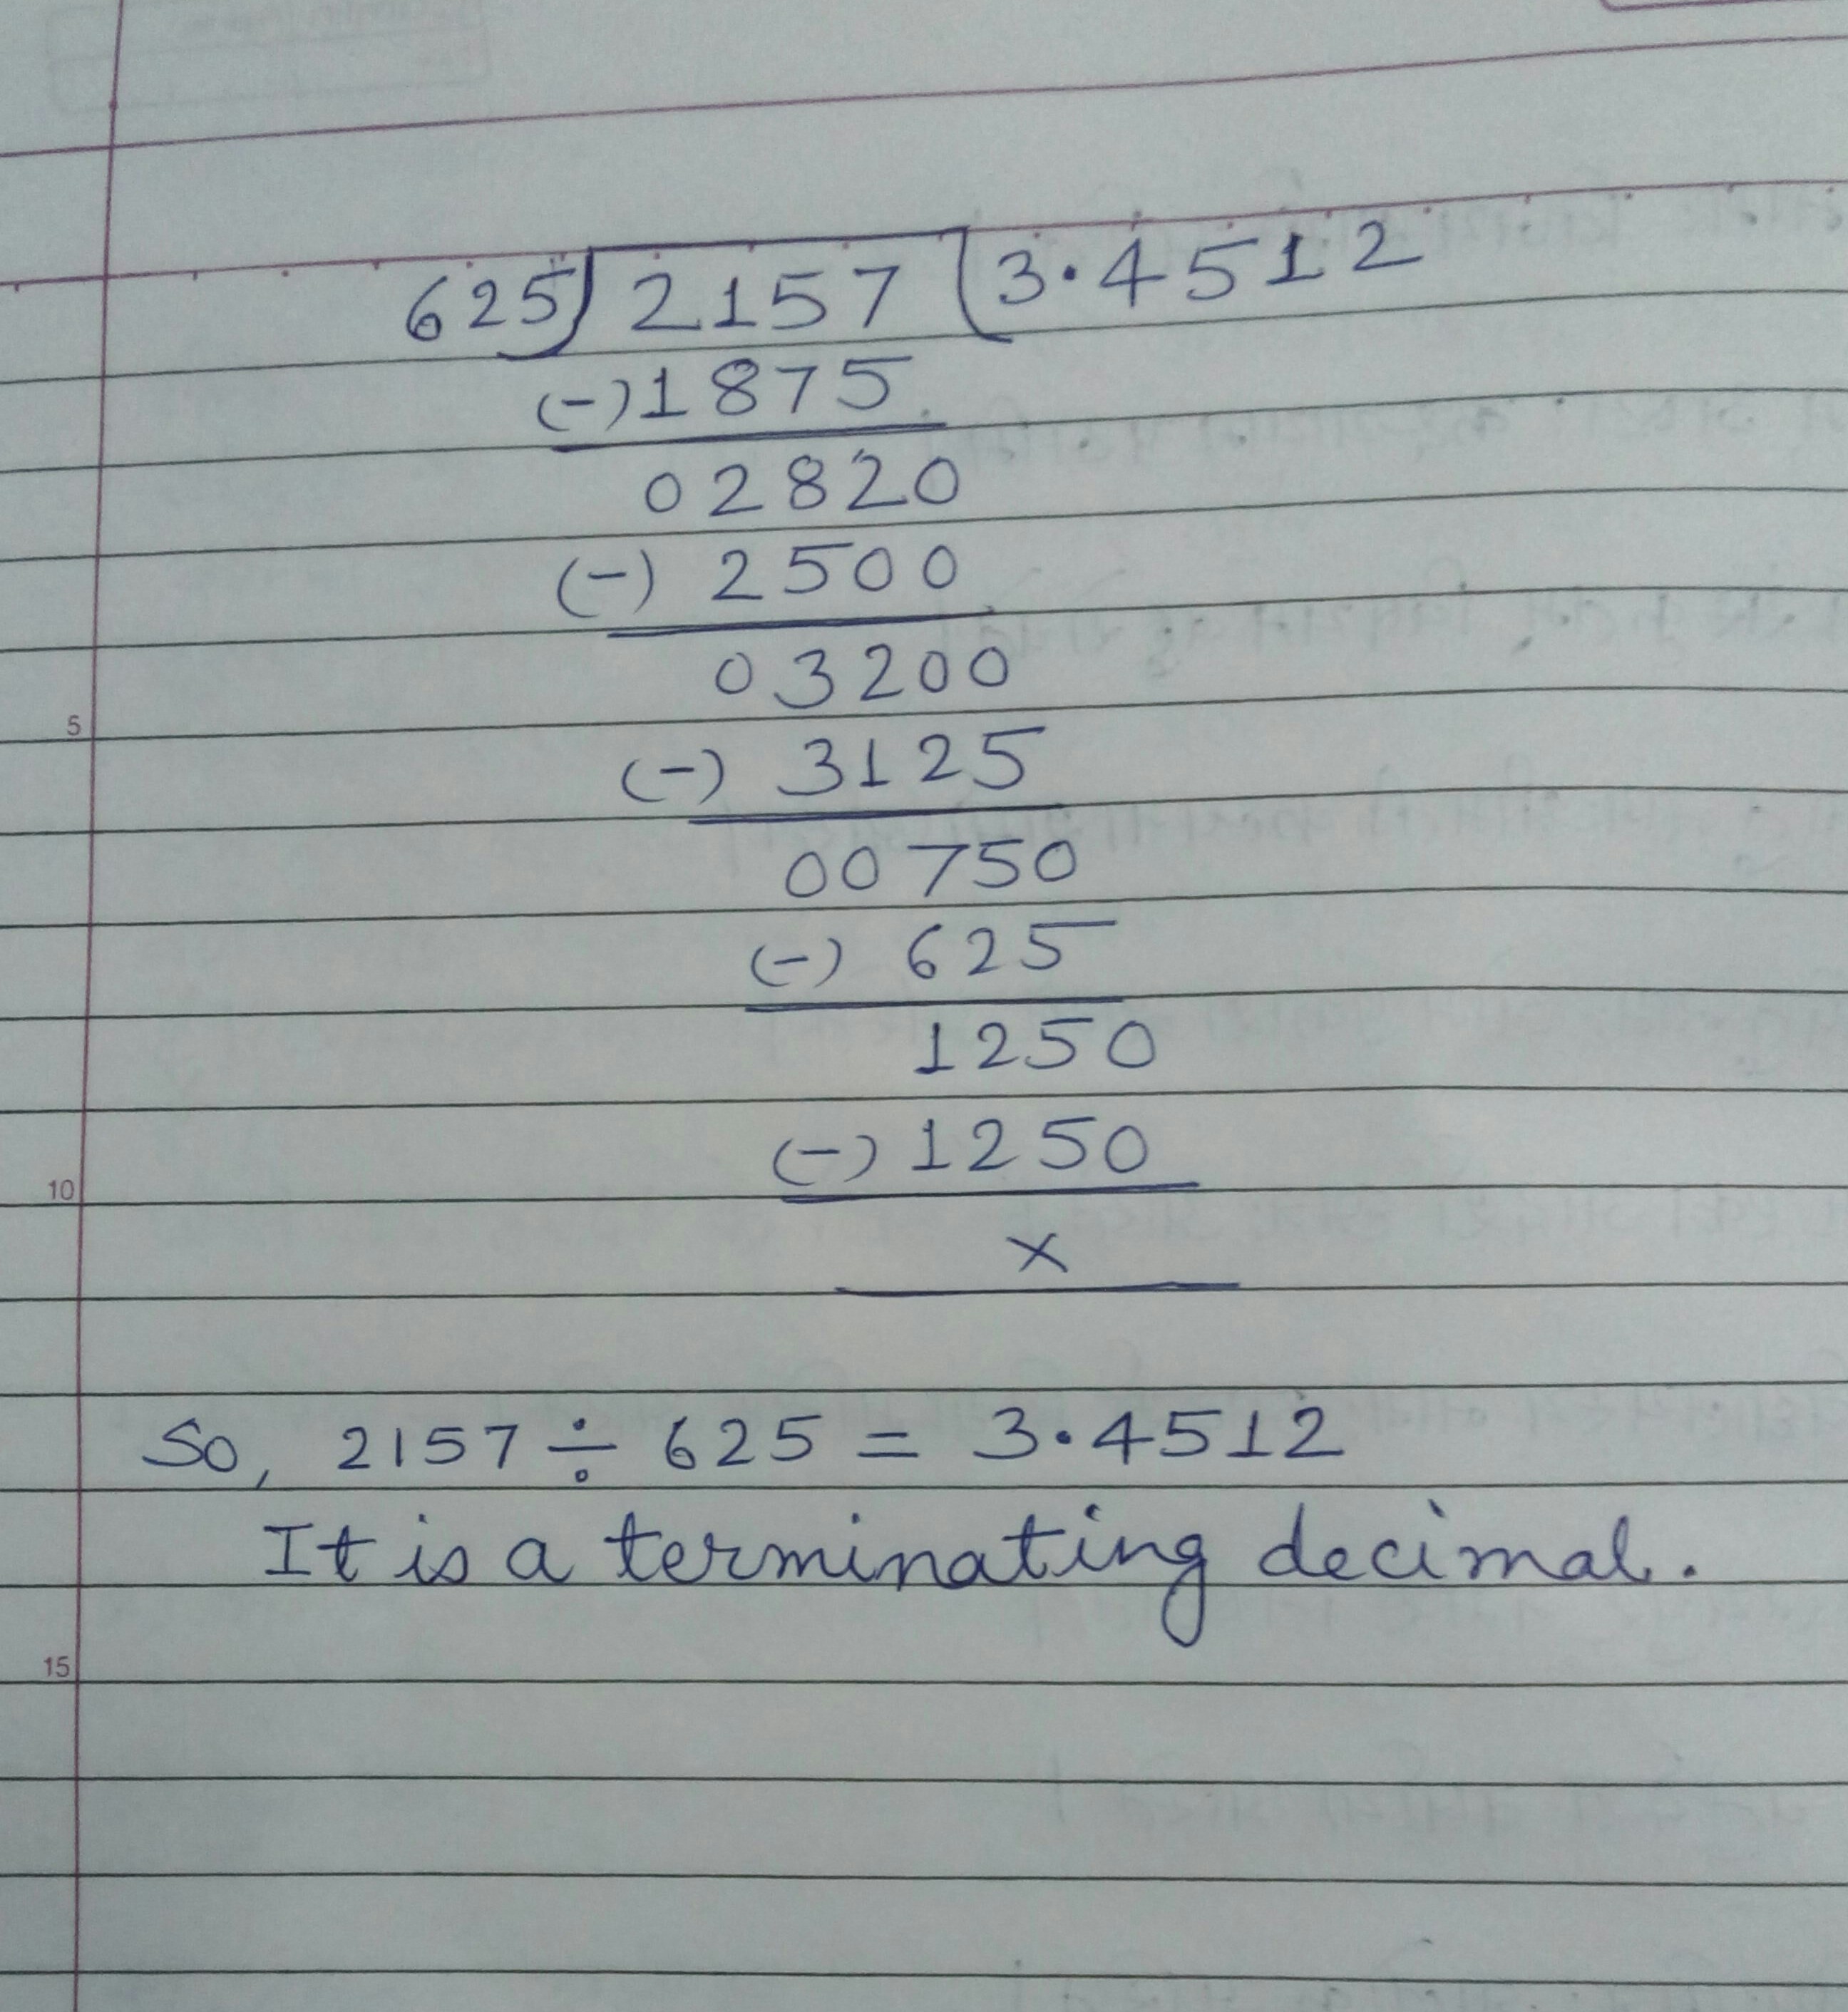 625) 2157 (3.4512
(-)1875
02820
(-) 2500
03200
(-) 3125
5
00750
(-) 625
1250
(-) 1250
10
×
So, 2157 ÷ 625 = 3.4512
It is a terminating decimal.
15